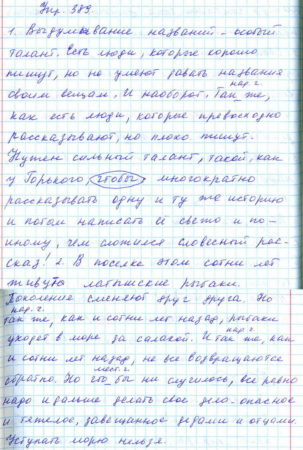 Упр. 389
1. Выдумывание названий - особый
талант. Есть люди, которые хорошо
пишут, но не умеют давать названия
своим вещам. И наоборот. Так же,
нар.ч
как есть люди, которые превосходно
рассказывают, но плохо пишут.
Нужен сильный талант, такой, как
у Горького, чтобы многократно
рассказывать одну и ту же историю
и потом написать ее свежо и по-
иному, чем сложился словесный рас-
сказ! 2. В поселке этом сотни лет
живут латышские рыбаки.
Поколение сменяют друг друга. Но
нар.ч.
так же, как и сотни лет назад, рыбаки
уходят в море за салакой. И так же, как
нар.ч
и сотни лет назад, не все возвращаются
обратно. Но что бы ни случилось, все равно
мест.ч.
надо и дальше делать свое дело - опасное
и тяжелое, завещанное дедами и отцами.
Уступать морю нельзя.